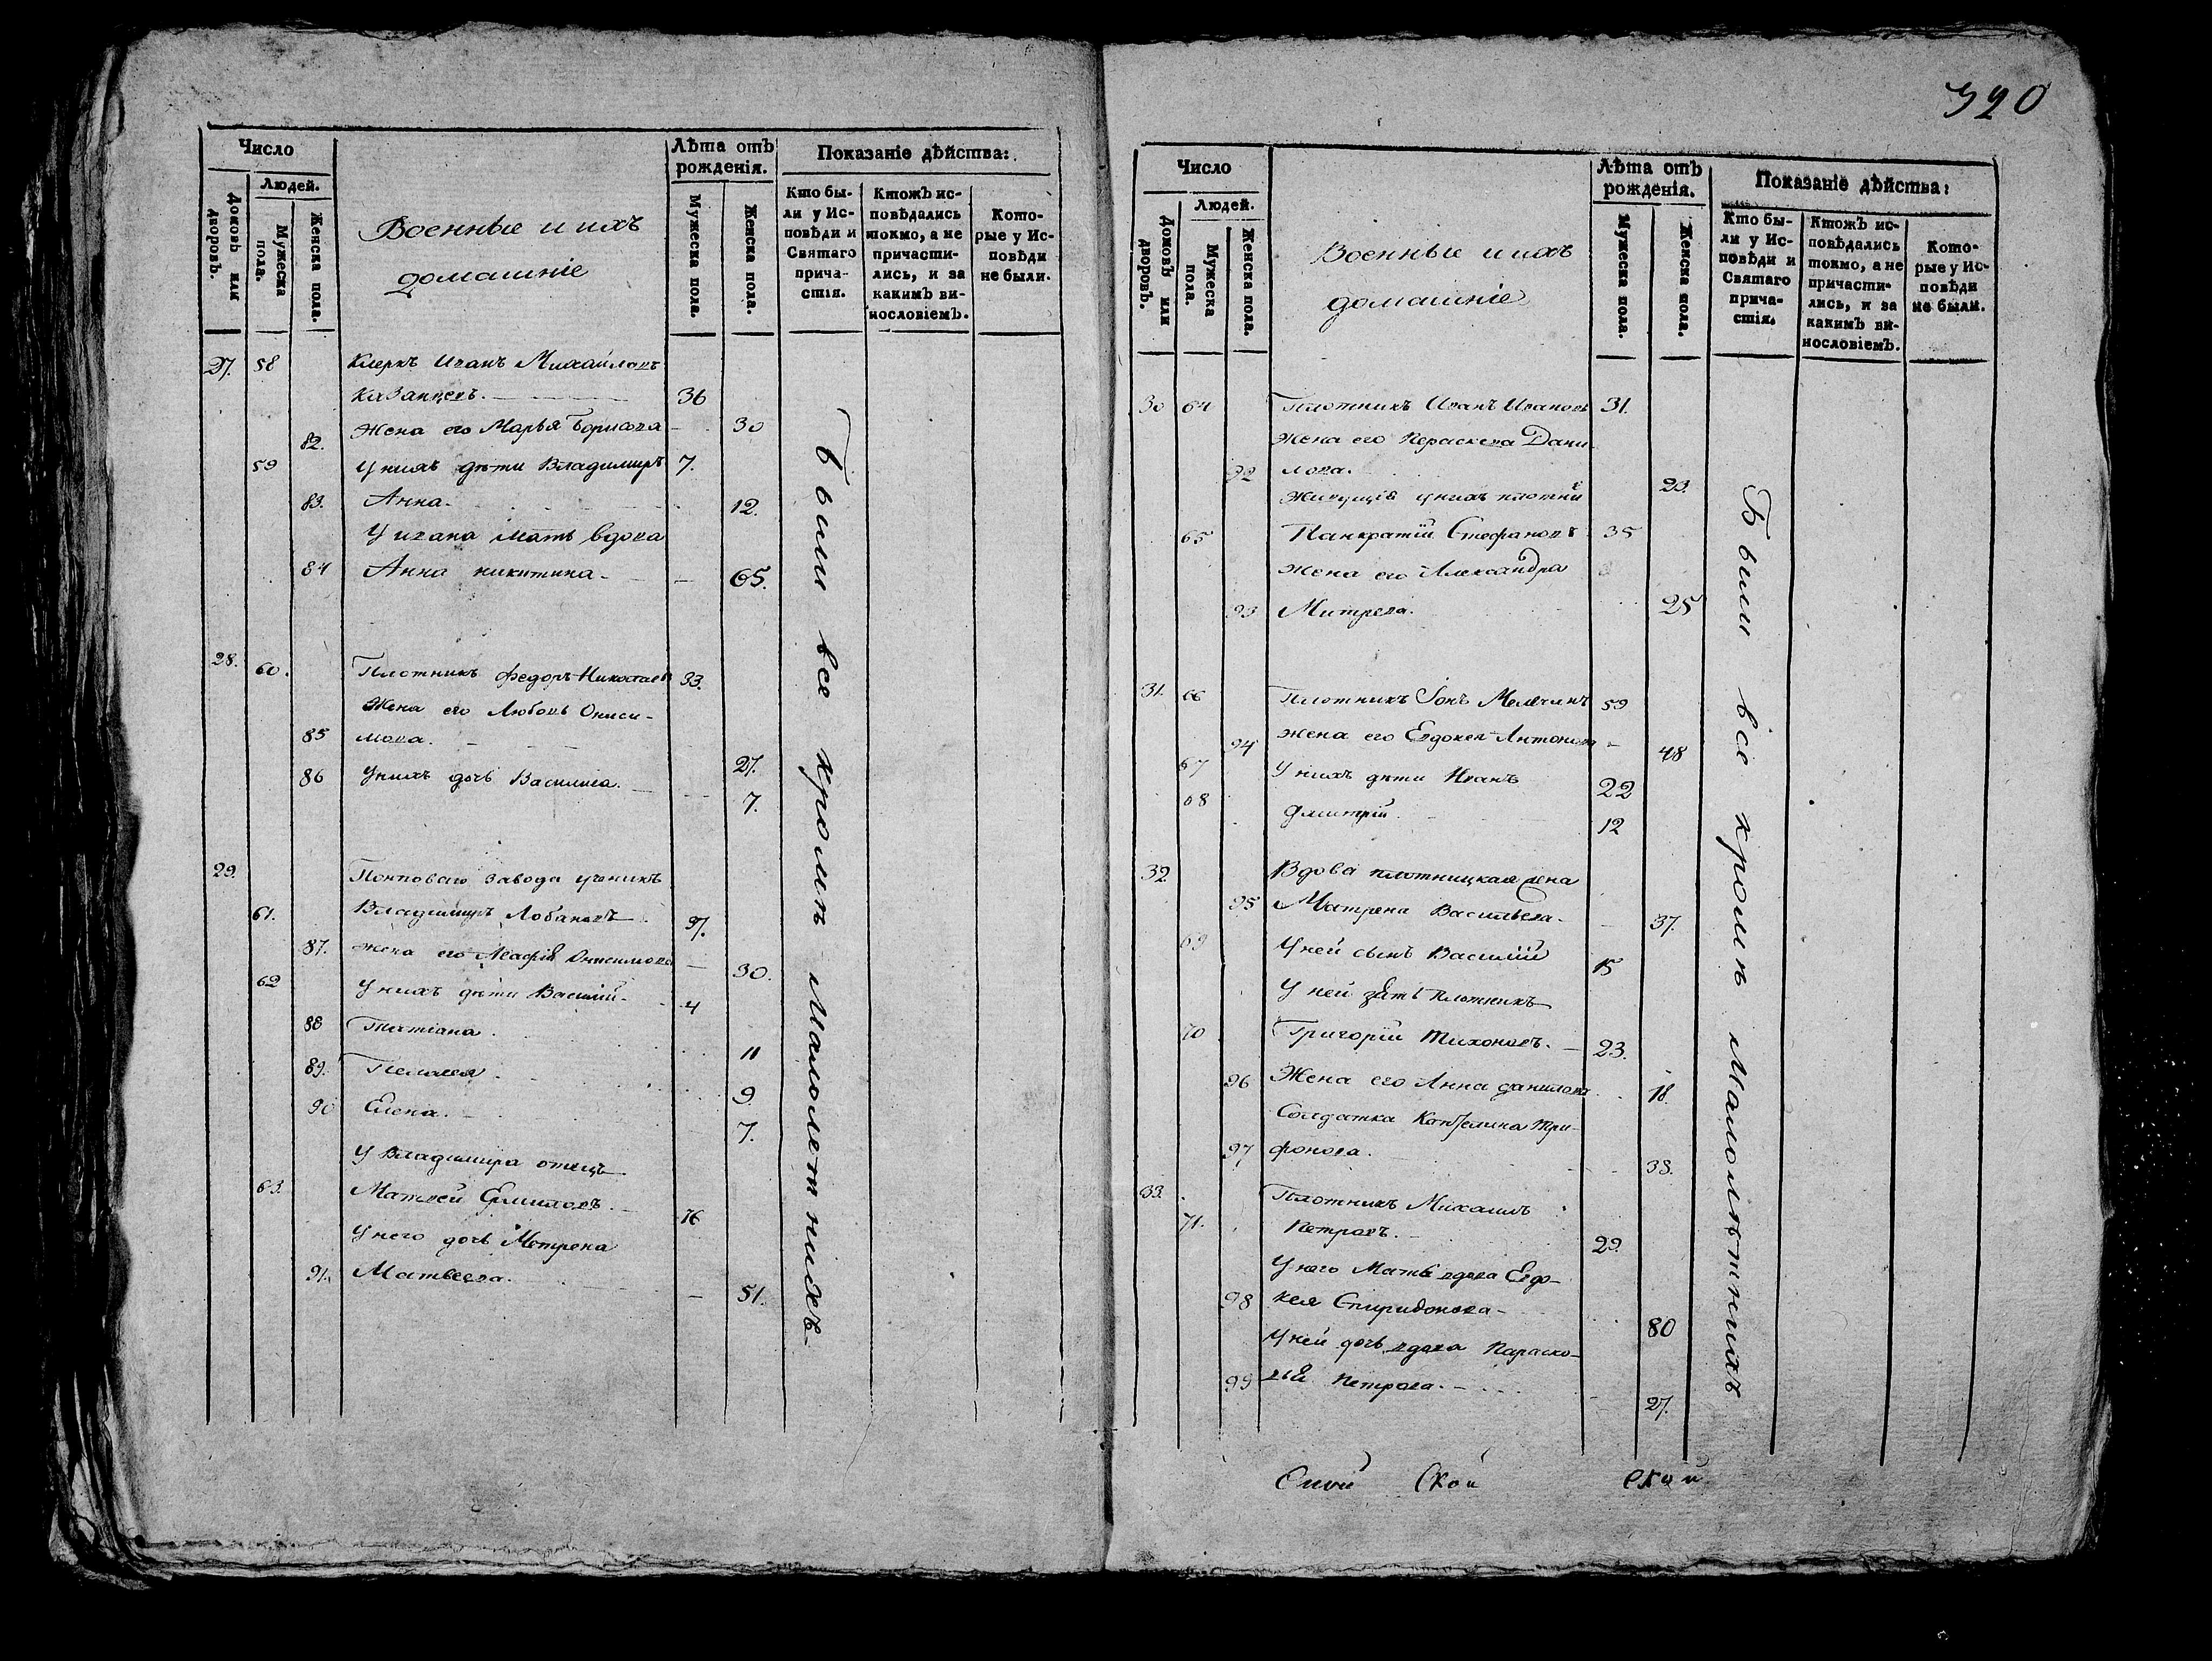 320
Число
Людей.
Домовъ или дворовъ.
Мужеска пола.
Женска пола.
Военные и ихъ
домашніе
Лѣта отъ рожденія.
Мужеска пола.
Женска пола.
Показаніе дѣйства:
Кто бы-
ли у Ис-
повѣди и
Святаго
прича-
стія.
Ктожъ ис-
повѣдались
токмо, а не
причасти-
лись, и за
какимъ ви-
нословіемъ.
Кото-
рые у Ис-
повѣди
не были.
27. 58 Клеркъ Иванъ Михайловъ
Казанцевъ. 36
82. Жена его Марья Борисова 30
59 У нихъ дѣти Владимиръ 7.
83. Анна. 12.
У ивана мать вдова
84 Анна никитина 65.
28. 60. Плотникъ Федоръ Николаевъ 33.
Жена его Любовь Ониси-
85 мова. 27.
86 У нихъ дочь Василиса. 7.
29. завода ученикъ
61. Владимиръ Лобановъ 37.
87. жена его Онисимова 30.
62 У нихъ дѣти Василій 4
88 Татіана 11
89. Пелагея 9
90 Елена. 7.
У Владимира отецъ
63. Матвей Ермиловъ. 76
У него дочь Матрена
91. Матвеева. 51.
Были все кромѣ малолетнихъ
Число
Людей.
Домовъ или дворовъ.
Мужеска пола.
Женска пола.
Военные и ихъ
домашніе
Лѣта отъ рожденія.
Мужеска пола.
Женска пола.
Показаніе дѣйства:
Кто бы-
ли у Ис-
повѣди и
Святаго
прича-
стія.
Ктожъ ис-
повѣдались
токмо, а не
причасти-
лись, и за
какимъ ви-
нословіемъ.
Кото-
рые у Ис-
повѣди
не были.
30 64 Плотникъ Иванъ Ивановъ 31.
Жена его Параскева Дани-
92 лова. 23.
Живущія у нихъ плотни
65 Панкратій Стефановъ 35
Жена его Александра
93 Митрева. 25
31. 66 Плотникъ 59
94 жена его Евдокея Антонова 48
67 У нихъ дѣти Иванъ 22
68 Дмитрій 12
32. Вдова плотницкая жена
95 Матрена Васильева 37.
69 У ней сынъ Василій 15
У ней зять плотникъ
70 Григорій Тихоновъ. 23.
96 Жена его Анна данилова 18.
Солдатка Катерина Три-
97 фонова. 38.
33. Плотникъ Михаилъ
71. Петровъ. 29.
У него Мать вдова Евдо-
98 кея Спиридонова 80
У ней дочь вдова Параско-
99 вья Петрова. 27.
Были все кромѣ малолѣтнихъ
Ской ской